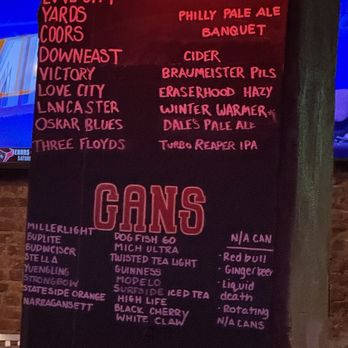 YARDS PHILLY PALE ALE
COORS BANQUET
DOWNEAST CIDER
VICTORY BRAUMEISTER PILS
LOVE CITY ERASERHOOD HAZY
LANCASTER WINTER WARMER
OSKAR BLUES DALE'S PALE ALE
THREE FLOYDS TURBO REAPER IPA
CANS
MILLERLIGHT
BUDLITE
BUDWEISER
STELLA
YUENGLING
STRONGBOW
STATESIDE ORANGE
NARRAGANSETT
DOGFISH 60
MICH ULTRA
TWISTED TEA LIGHT
GUINNESS
MODELO
SURFSIDE ICED TEA
HIGH LIFE
BLACK CHERRY
WHITE CLAW
N/A CAN
· Red bull
· Ginger beer
· Liquid
death
· Rotating
N/A CANS